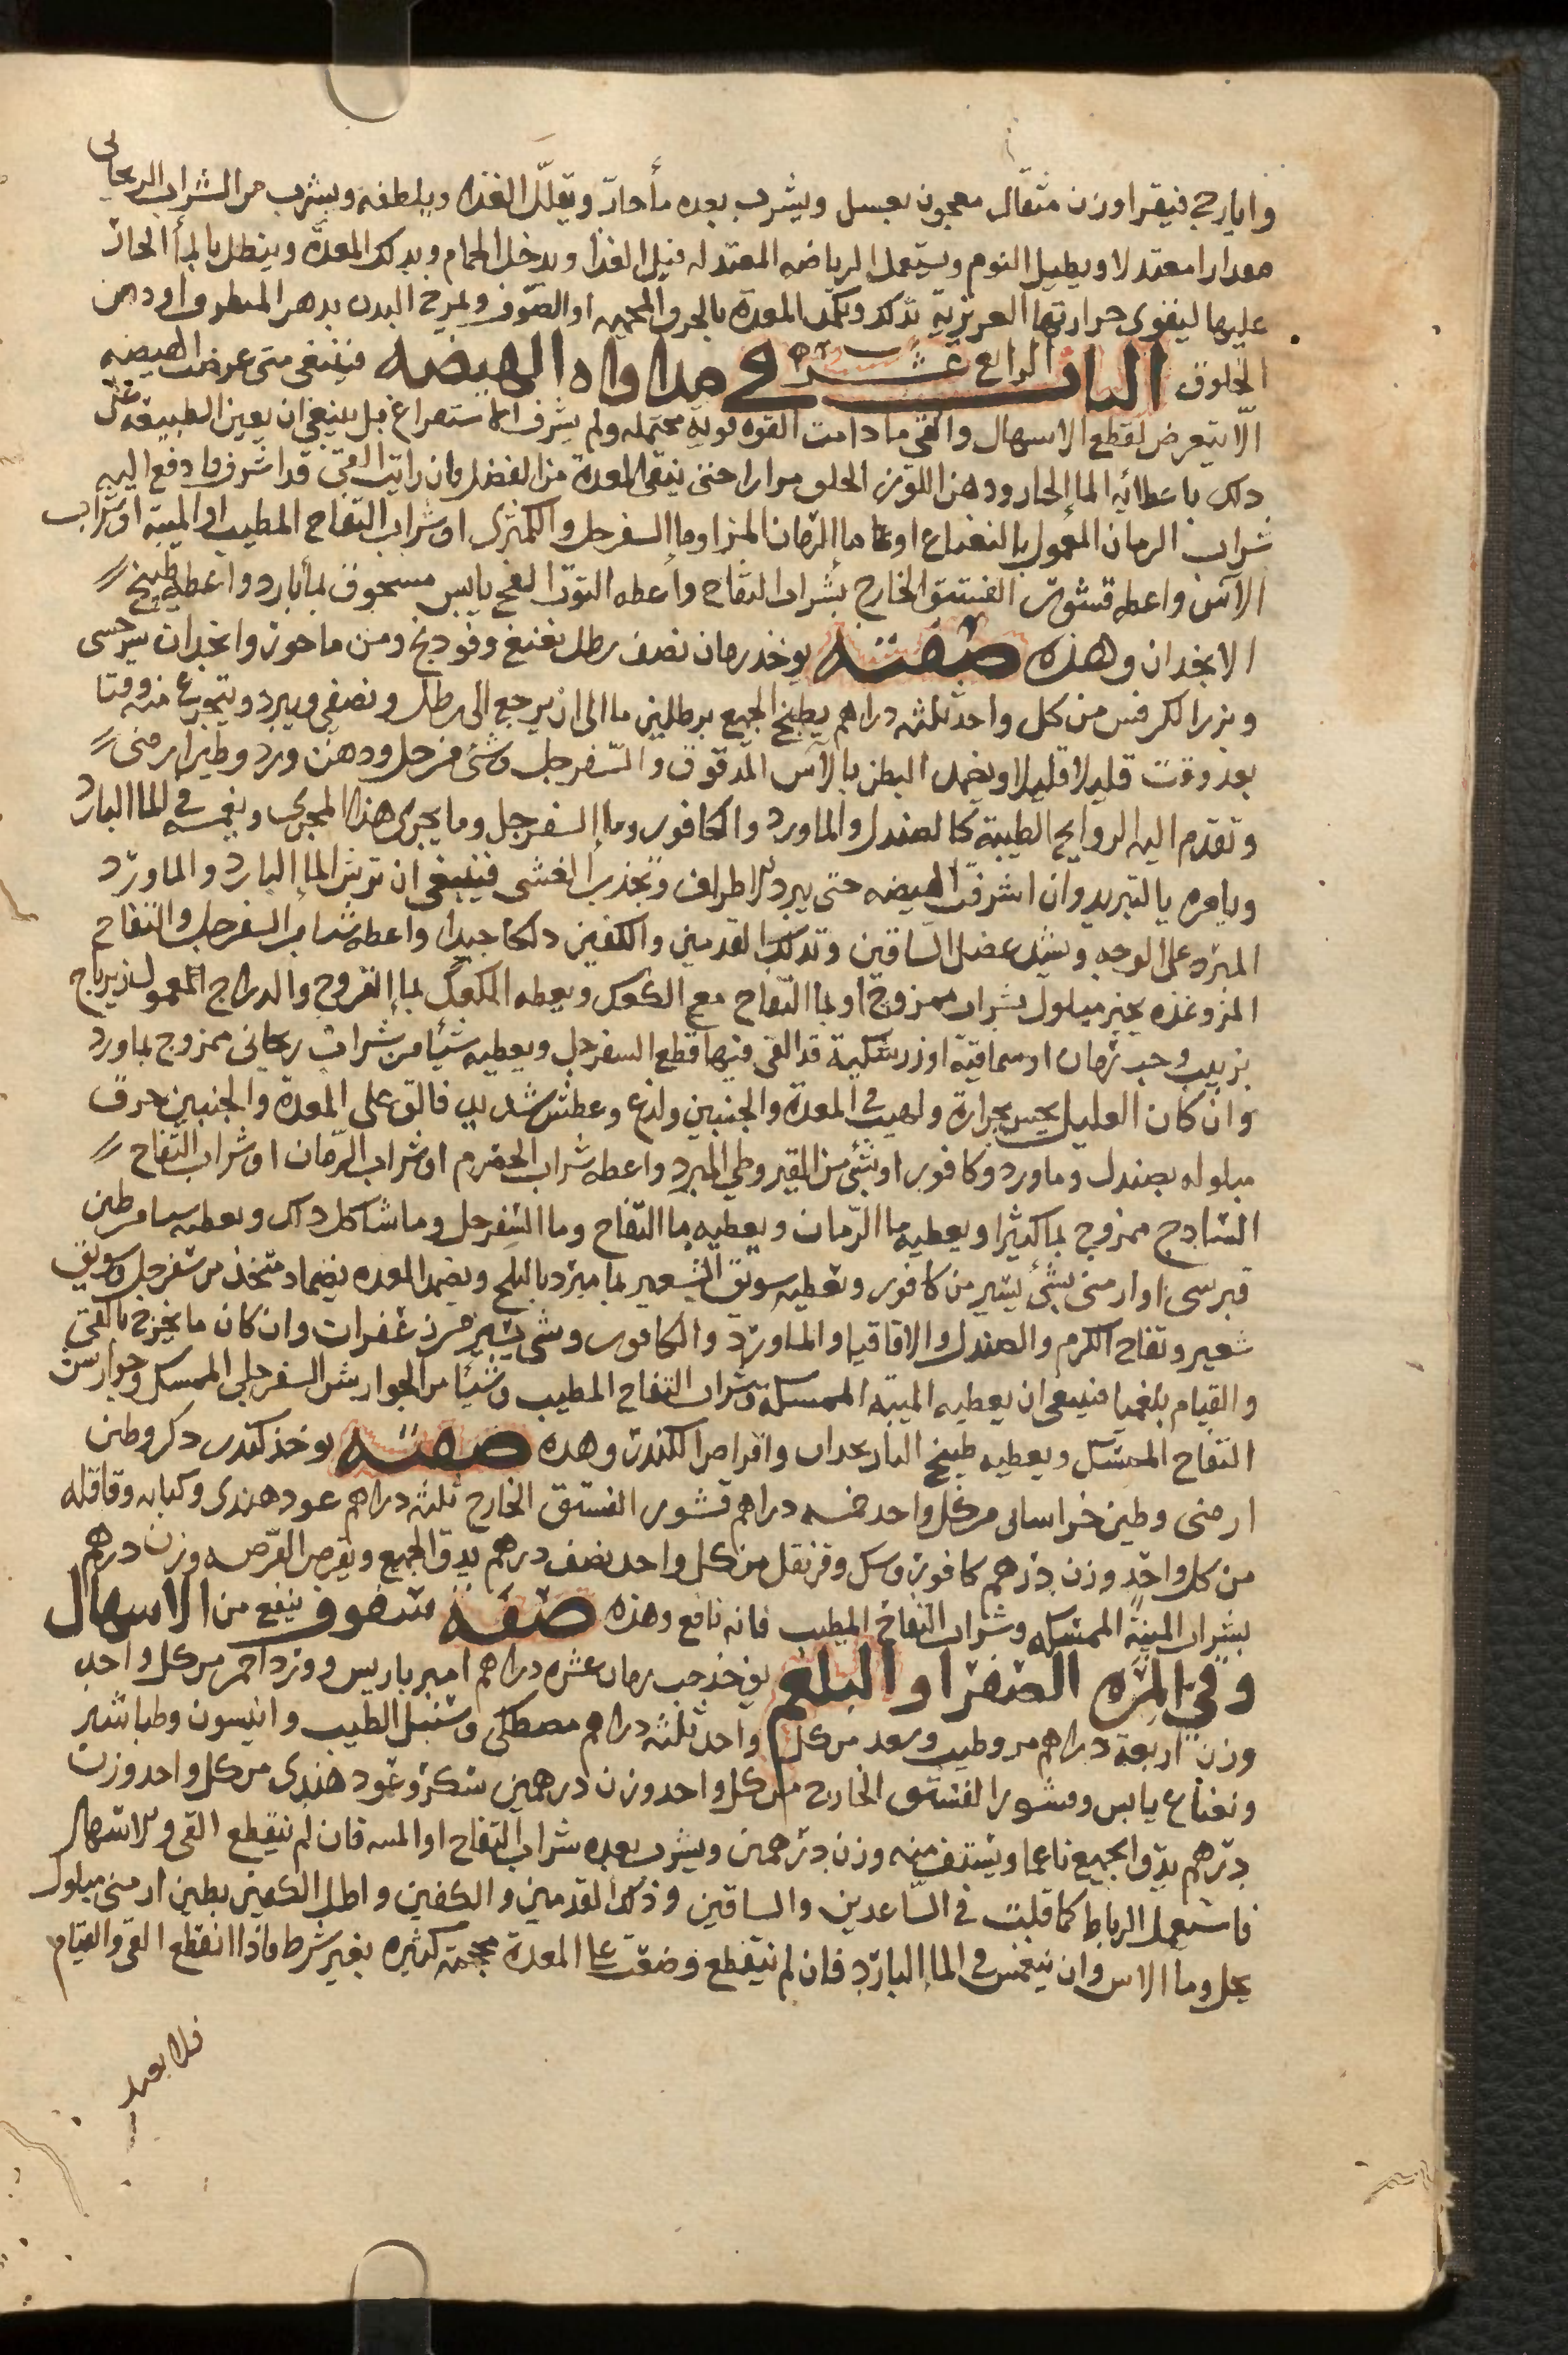 وايارج فيقرا وزن مثقال معجون بعسل ويشرب بعده مأ حار ويقلل الغذا ويلطفه ويشرب من الشراب الريحانى
مقدارا معتدلا ويطيل النوم ويستعمل الرياضه المعتدله قبل الغذا ويدخل الحمام ويدلك المعدة وينطل بالمأ الحار
عليها ليقوى حرارتها الغريزية بذلك وتكمد المعدة بالخرق المحميه او الصوف ويمرخ البدن بدهن او دهن
الخلوق الباب الرابع عشر في مداواه الهيضه فينبغى متى عرضت الهيضه
الا يتعرض لقطع الاسهال والقى ما دامت القوه قوية محتمله ولم يسرف الاستفراغ بل ينبغى ان يعين الطبيعة على
ذلك باعطائه الما الحار ودهن اللوز الحلو مرارا حتى ينقى المعدة من الفضل فان رايت القى قد اسرف فادفع اليه
شراب الرمان المعمول بالنعناع او ما الرمان المز او ما السفرجل والكمثرى او شراب التفاح المطيب او الميبة او شراب
الآس واعطه قشور الفستق الخارج بشراب التفاح وأعطه التوت الفج يابس مسحوق بمأ بارد واعطه طبيخ
الانجدان وهذه صفته يوخذ رمان نصف رطل نعنع وفودنج ومن ماحوز وانجدان سرخسى
وبزر الكرفس من كل واحد ثلثه دراهم يطبخ الجميع برطلين ما الى ان يرجع الى رطل ونصفى ويبرد ويتجرع منه وقتا
بعد وقت قليلا قليلا ويضمد البطن بالآس المدقوق والسفرجل وشئ من خل ودهن ورد وطين ارمنى
وتقدم اليه الروايح الطيبة كالصندل والماورد والكافور وما السفرجل وما يجرى هذا المجرى ويغمسه فى الما البارد
ويامره بالتبريد وان اسرفت الهيضه حتى يبرد الاطراف وتجذب الغشى فينبغى ان ترش الما البارد والماورد
المبرد على الوجه ويشد عضل الساقين وتدلك القدمين والكفين دلكا جيدا واعطه شراب السفرجل والتفاح
المز وغذه بخبز مبلول بشراب ممزوج او بما التفاح مع الكعك ويعطه الكعك بما الفروج والدراج المعمول زيرباج
بزبيب وحب رمان او سماقية او زرشكية قد القى فيها قطع السفرجل ويعطيه شيئا من شراب ريحانى ممزوج بماورد
وان كان العليل يحس بحرارة ولهيب فى المعدة والجنبين ولذع وعطش شديد فالق على المعدة والجنبين خرق
مبلوله بصندل وماورد وكافور او بشئ من القيروطى المبرد واعطه شراب الحصرم او شراب الرمان او شراب التفاح
الساذج ممزوج بما كثيرا ويعطيه ما الرمان ويعطيه ما التفاح وما السفرجل وما شاكل ذلك ويعطيه شيئا من طين
قبرسى او ارمنى بشئ يسير من كافور وتعطيه سويق الشعير بما مبرد بالثلج ويضمد المعده بضماد متخذ من سفرجل وسويق
شعير وتفاح الكرم والصندل والاقاقيا والماورد والكافور وشى يسير من زعفران وان كان ما يخرج بالقى
والقيام بلغميا فينبغى ان يعطيه الميبه الممسكة وشراب التفاح المطيب وشيئا من الجوارشن السفرجلى الممسك وجوارشن
التفاح الممسك ويعطيه طبيخ واقراص الكندر وهذه صفته يوخذ كندر ذكر وطين
ارمنى وطين خراسانى من كل واحد خمسه دراهم قشور الفستق الخارج ثلثه دراهم عود هندى وكبابه وقاقله
من كل واحد وزن درهم كافور ومسك وقرنفل من كل واحد نصف درهم يدق الجميع ويقرص القرصه وزن درهم
بشراب الميبة الممسكه وشراب التفاح المطيب فانه نافع وهذه صفه سفوف ينفع من الاسهال
وفي المره الصفرا والبلغم يوخذ حب رمان عشره دراهم امير باريس وورد احمر من كل واحد
وزن اربعة دراهم مر وطيب وسعد من كل واحد ثلثه دراهم مصطكى وسنبل الطيب وانيسون وطباشير
ونعناع يابس وقشور الفستق الخارج من كل واحد وزن درهمين سكر وعود هندى من كل واحد وزن
درهم يدق الجميع ناعما ويستف منه وزن درهمين ويشرب بعده شراب التفاح او الميبه فان لم ينقطع القى والاسهال
فاستعمل الرباط كما قلت فى الساعدين والساقين وذلك القدمين والكفين واطل الكفين بطين ارمنى مبلول
بخل وما الاس وان ينغمس فى الما البارد فان لم ينقطع وضعت على المعدة محجمة كبيره بغير شرط فاذا انقطع القى والقيام
فلا بعد